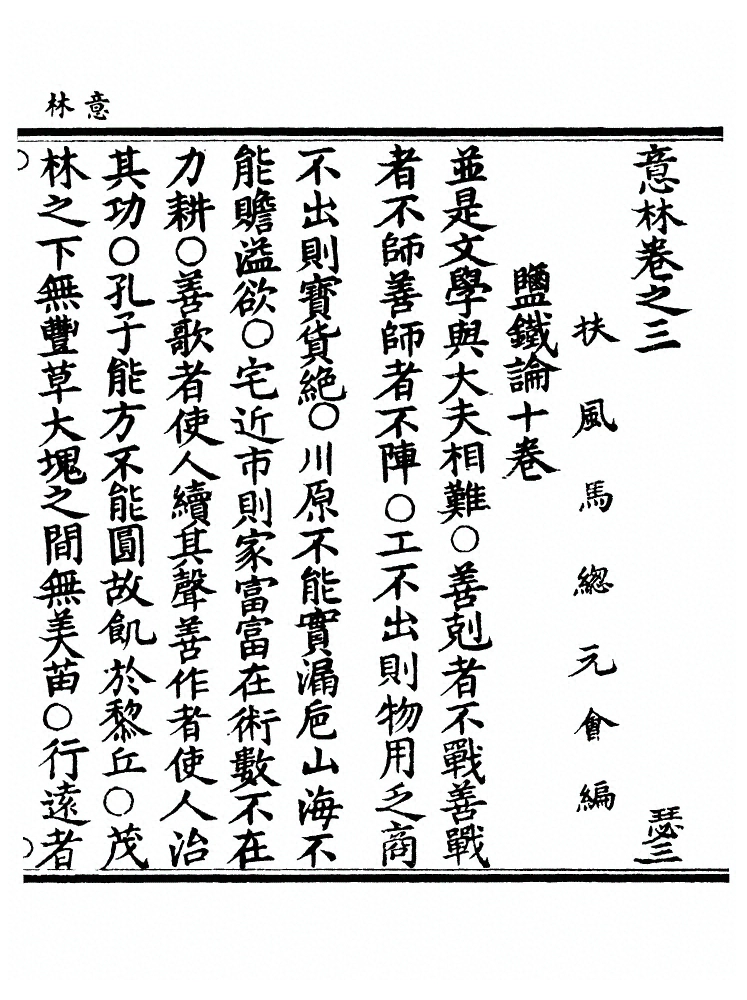 意林
意林卷之三
瑟三
扶風馬緫元會編
鹽鐵論十卷
並是文學與大夫相難○善剋者不戰善戰
者不師善師者不陣○工不出則物用乏商
不出則寳貨絕○川原不能實漏巵山海不
能贍溢欲○宅近市則家富富在術數不在
力耕○善歌者使人續其聲善作者使人治
其功○孔子能方不能圓故飢於黎丘○茂
林之下無豐草大塊之間無美苗○行遠者